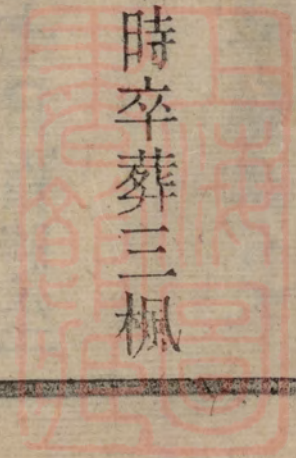 時卒葬三楓